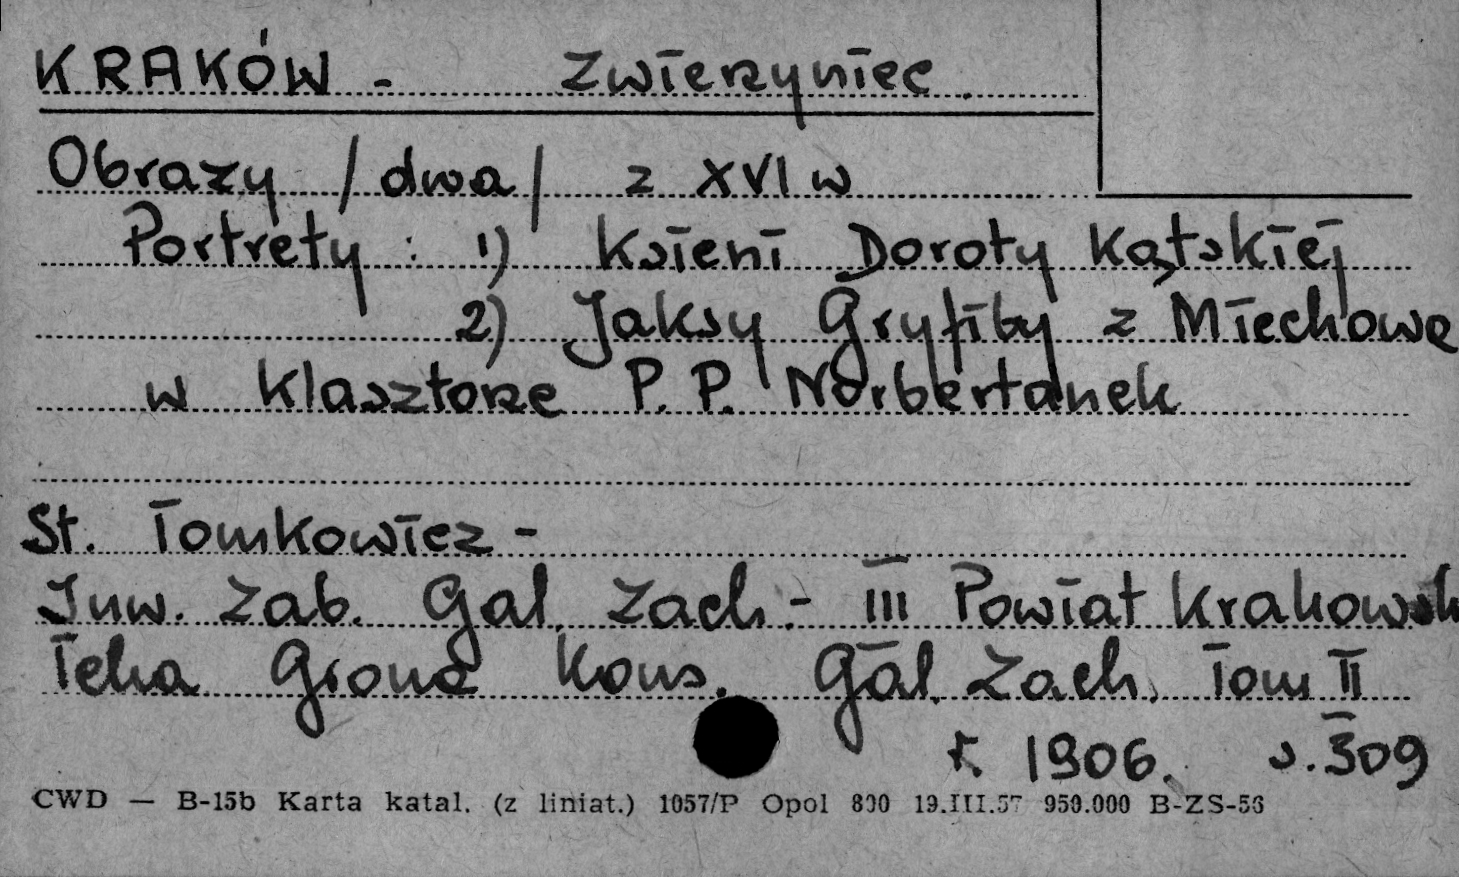 KRAKÓW - Zwierzyniec.
Obrazy /dwa/ z XVI w
Portrety: 1) Ksieni Doroty Kątskiej
2) Jaksy Gryfiby z Miechowa
w klasztorze P. P. Norbertanek
St. Tomkowicz -
Inw. Zab. Gal. Zach. - III Powiat Krakowsk
Teka Grona Kons. Gal. Zach. Tom II
r. 1906. s. 309
CWD — B-15b Karta katal. (z liniat.) 1057/P Opol 800 19.III.57 950.000 B-ZS-56